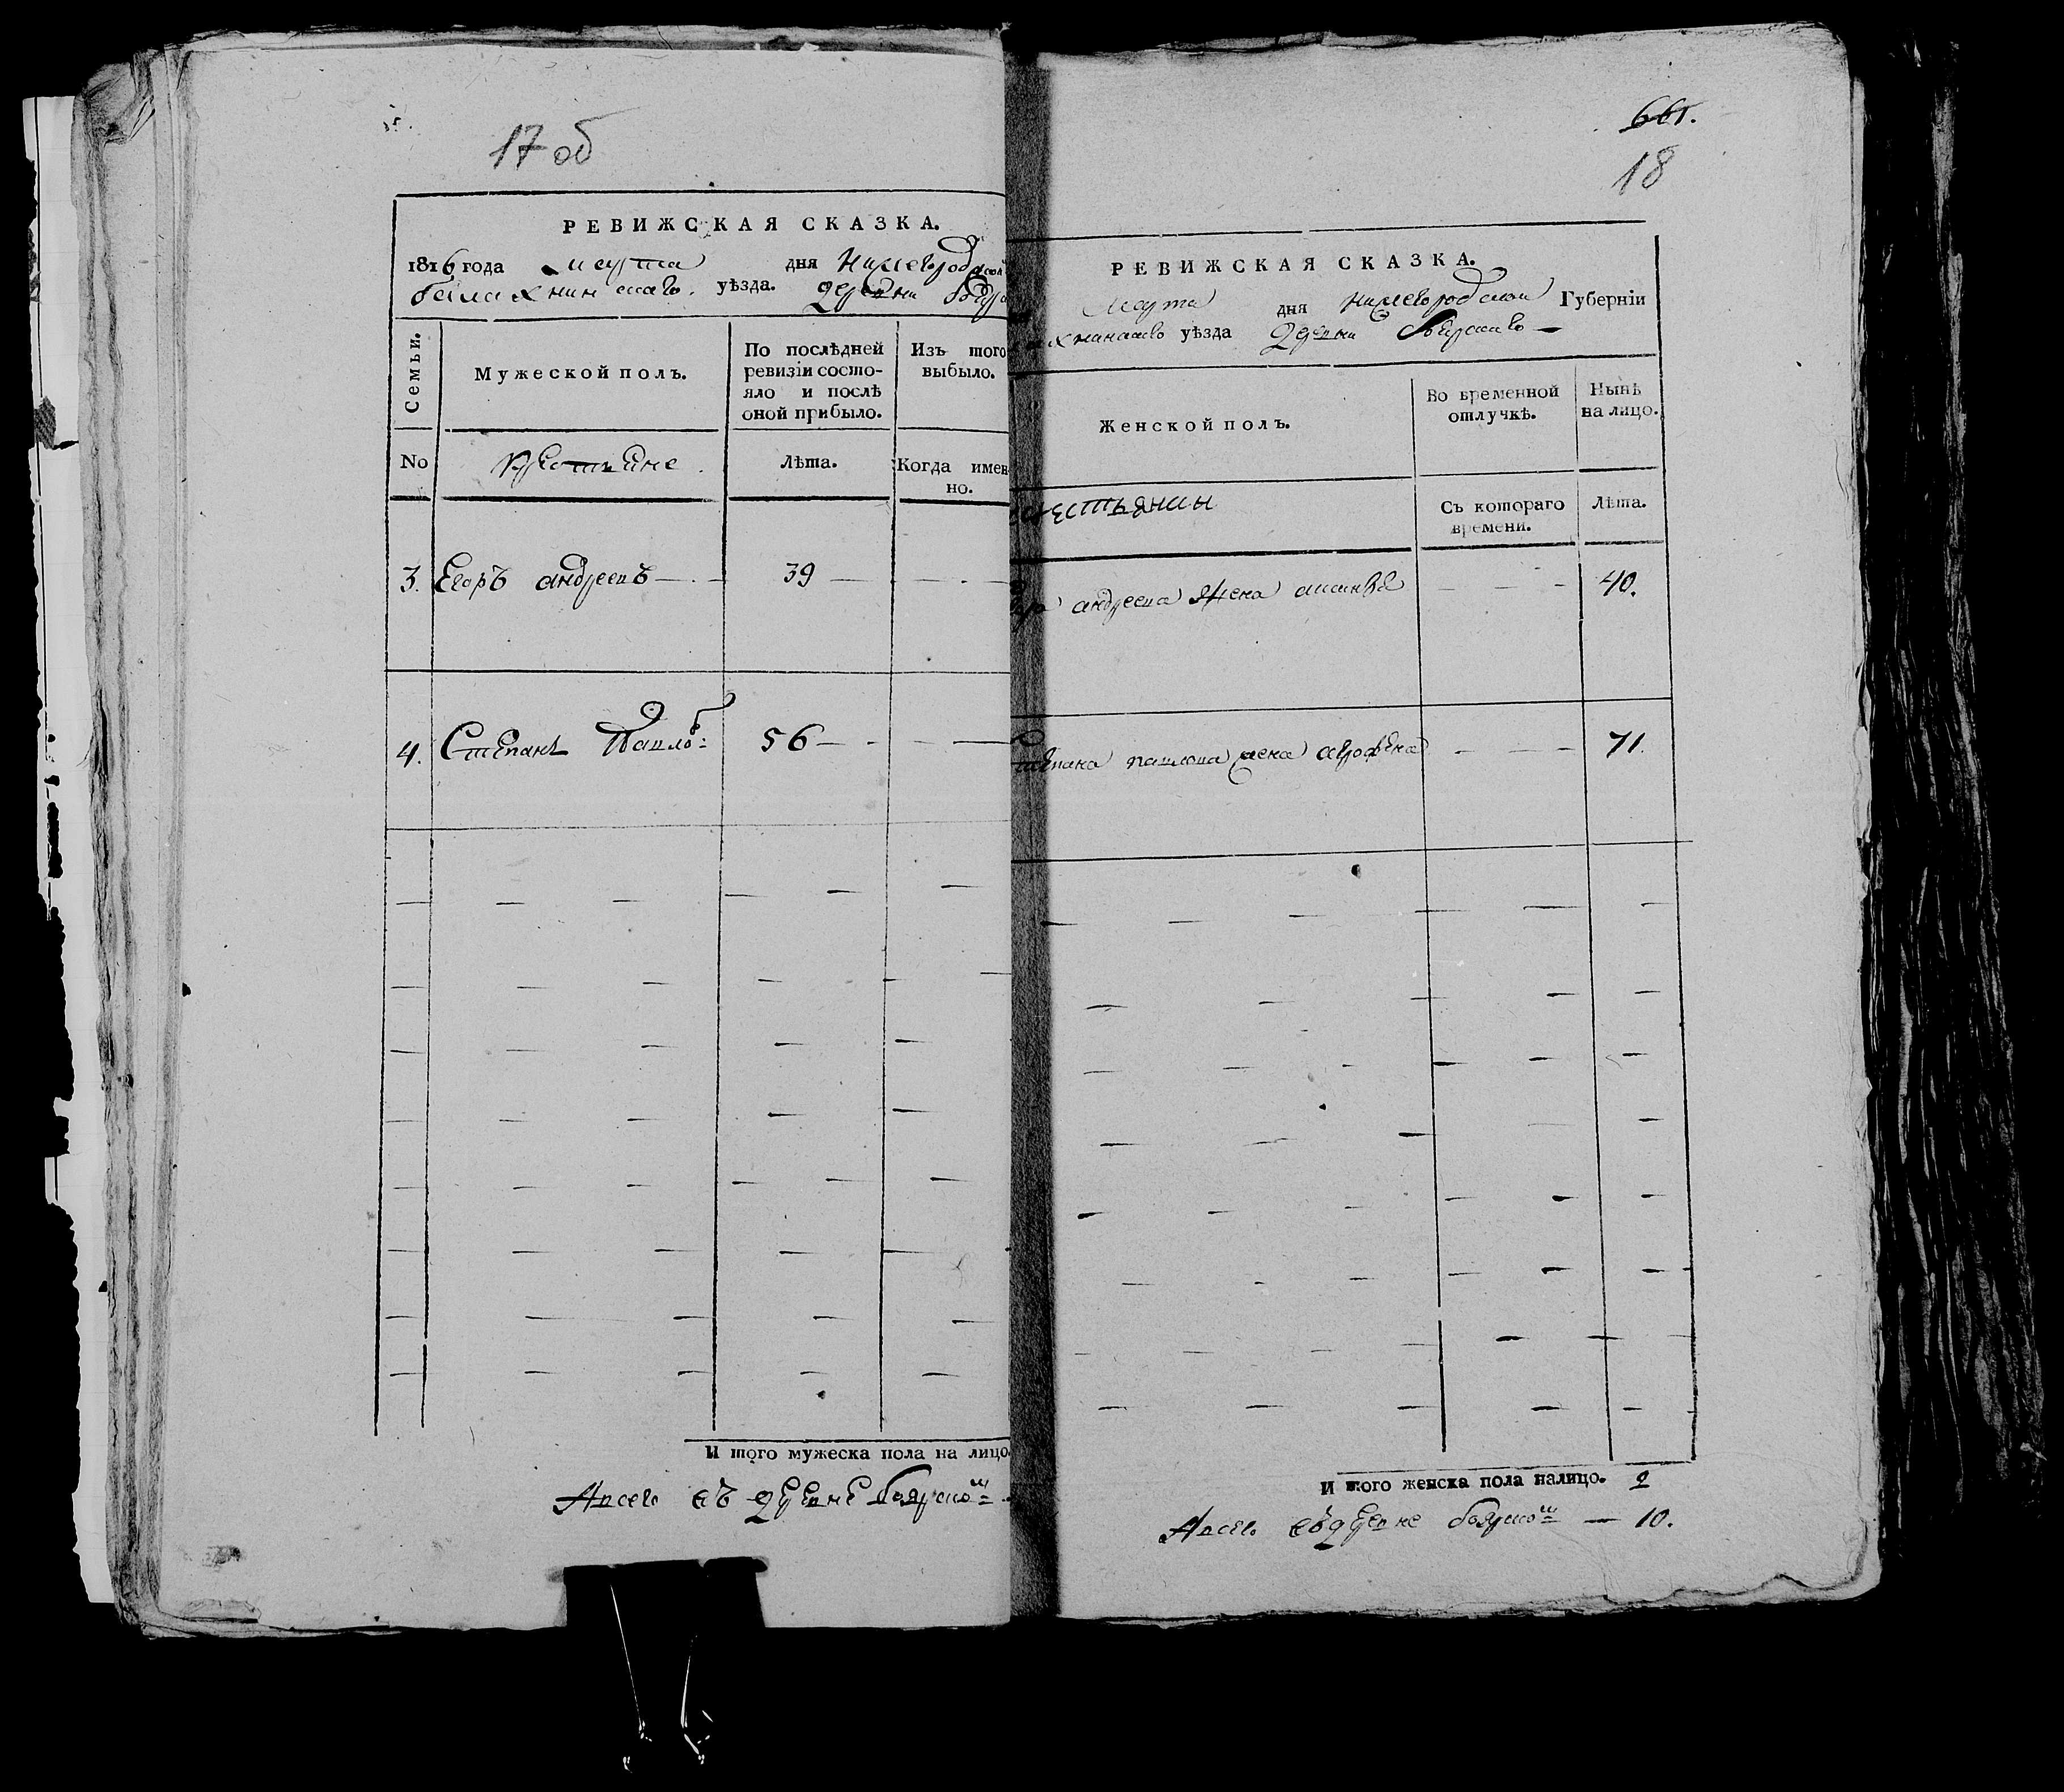 17 об
РЕВИЖСКАЯ СКАЗКА.
1816 года марта дня Нижегородской
балахнинскаго уѣзда. деревни
Семьи.
Мужеской полъ.
По послѣдней
ревизіи состо-
яло и послѣ
оной прибыло.
Изъ того
выбыло.
No
крестьяне
Лѣта.
Когда имен
но.
3. Егоръ андреевъ 39
4. Степанъ Павло: 56
И того мужеска пола на лицо.
Авсего въ деревне
661.
18
РЕВИЖСКАЯ СКАЗКА.
марта дня нижегородской Губерніи
хнинскаго уѣзда деревни
Женской полъ.
Во временной
отлучкѣ.
Нынѣ
на лицо.
рестьянки
Съ котораго
времени.
Лѣта.
андреева жена 40.
Степана павлова жена аграфена 71.
И того женска пола налицо. 2
Авсего въ деревне — 10.